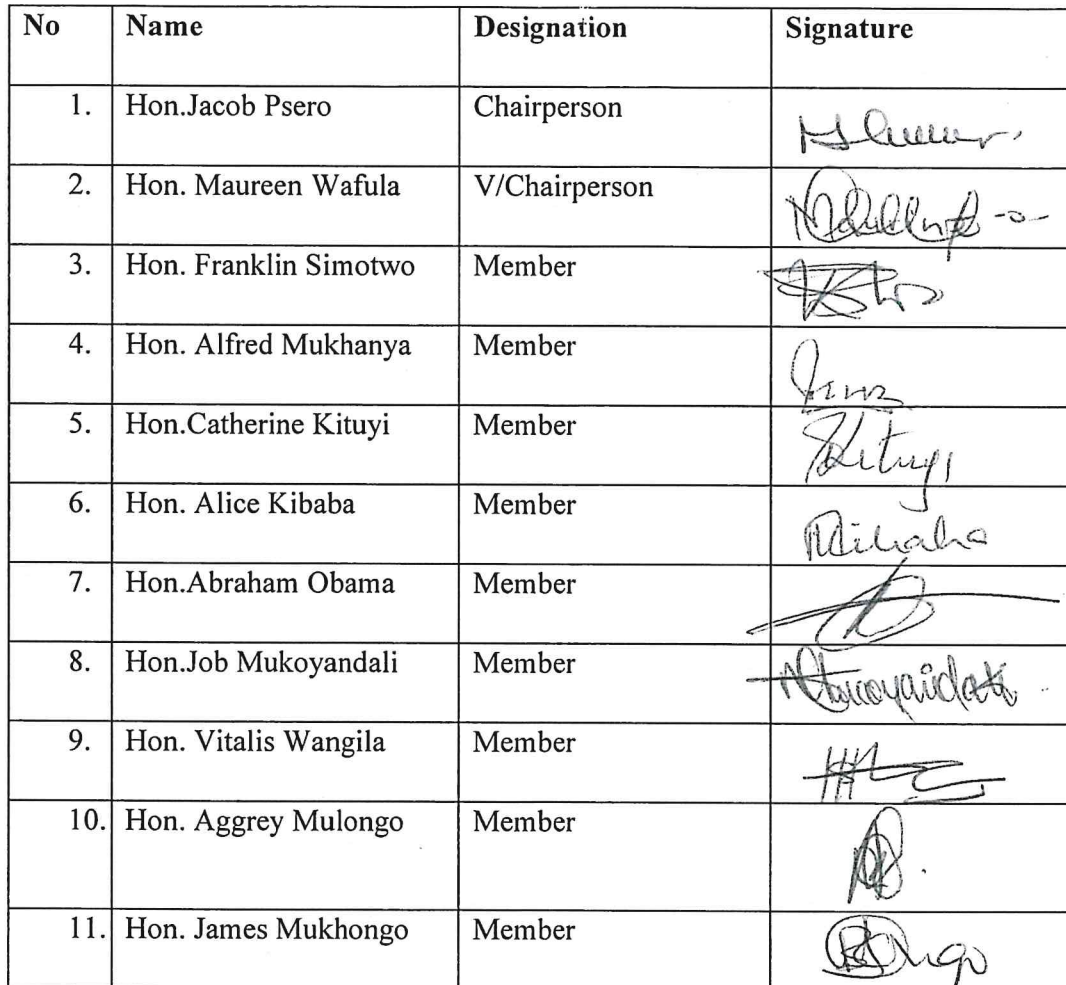 No Name Designation Signature
1. Hon.Jacob Psero Chairperson
2. Hon. Maureen Wafula V/Chairperson
3. Hon. Franklin Simotwo Member
4. Hon. Alfred Mukhanya Member
5. Hon.Catherine Kituyi Member
6. Hon. Alice Kibaba Member
7. Hon.Abraham Obama Member
8. Hon.Job Mukoyandali Member
9. Hon. Vitalis Wangila Member
10. Hon. Aggrey Mulongo Member
11. Hon. James Mukhongo Member